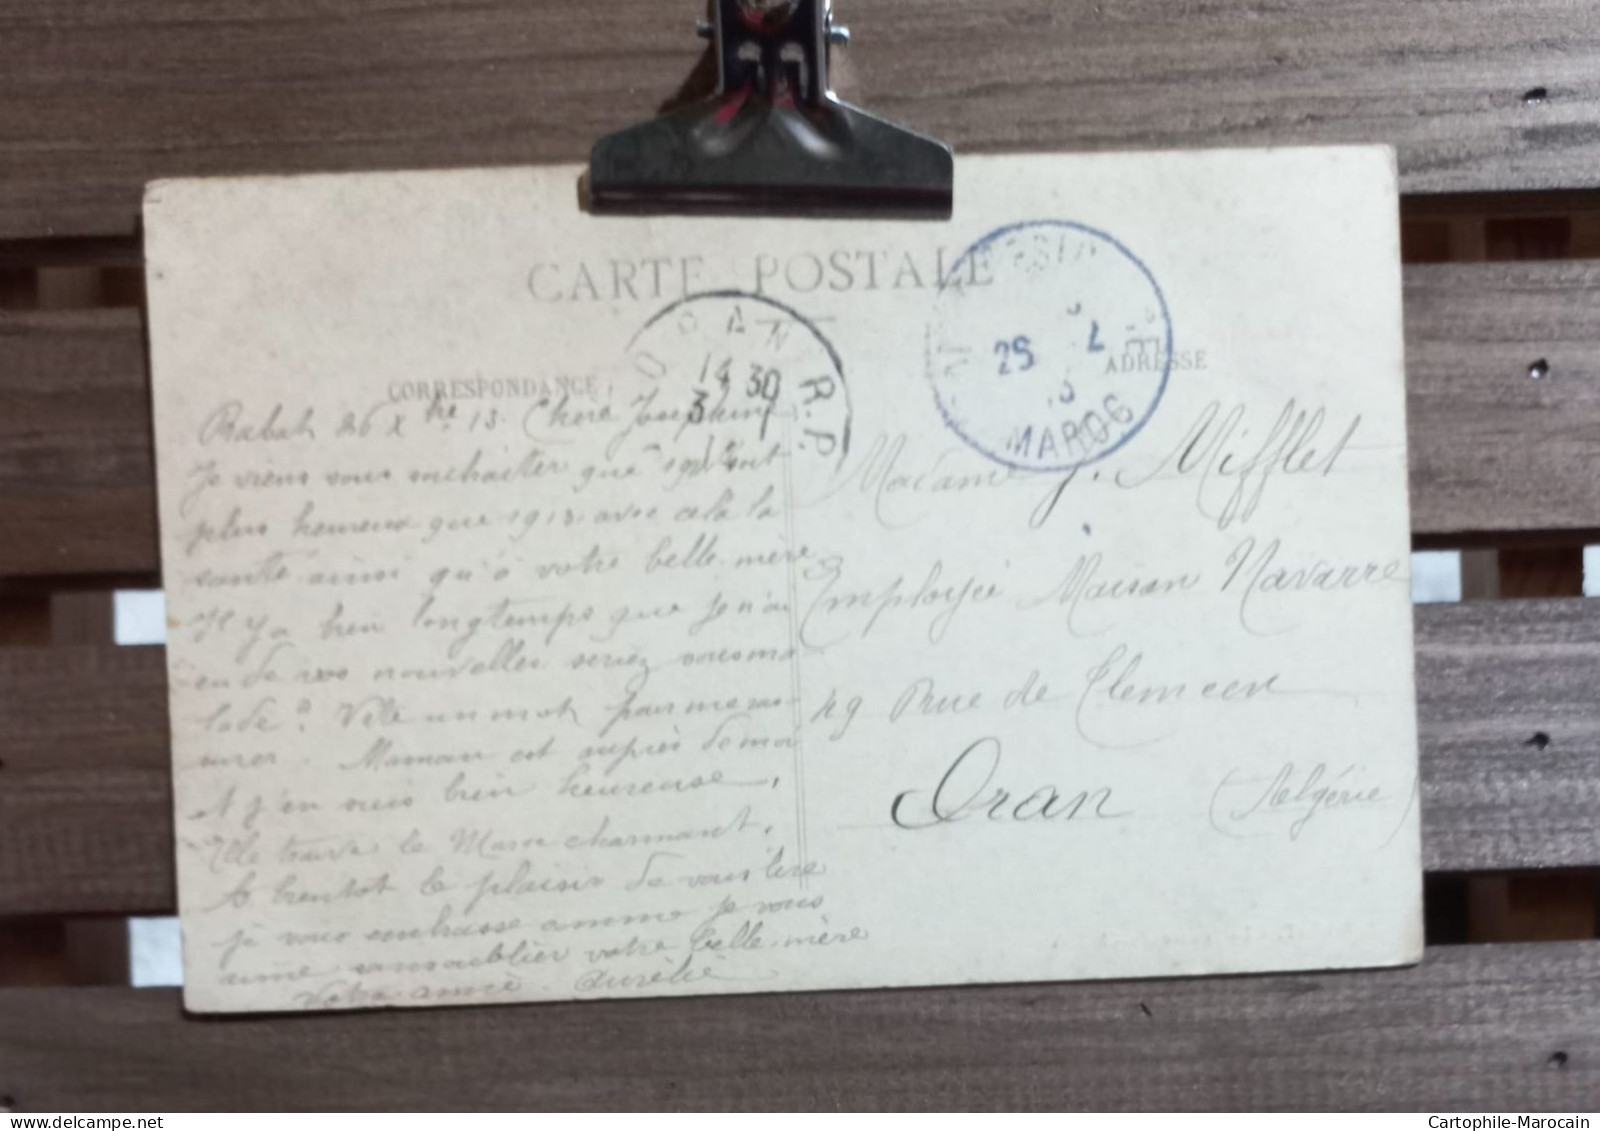 CARTE POSTALE
CORRESPONDANCE
ADRESSE
ORAN R.P.
14 30
3 1
14
25
MAROC
Rabat 26 Xbre 13. Chère Joséphine
Je viens vous souhaiter que 1914 soit
plus heureux que 1913. avec cela la
santé ainsi qu'à votre belle-mère
Il y a bien longtemps que je n'ai
eu de vos nouvelles. seriez vous ma
lade? Vite un mot pour me rass
urer. Maman est auprès de moi
et j'en suis bien heureuse,
Elle trouve le Maroc charmant,
A bientôt le plaisir de vous lire
je vous embrasse comme je vous
aime sans oublier votre belle-mère
Votre amie. Aurélie
Madame J. Mifflet
Employée Maison Navarre
49 Rue de Tlemcen
Oran (Algérie)
Cartophile-Marocain